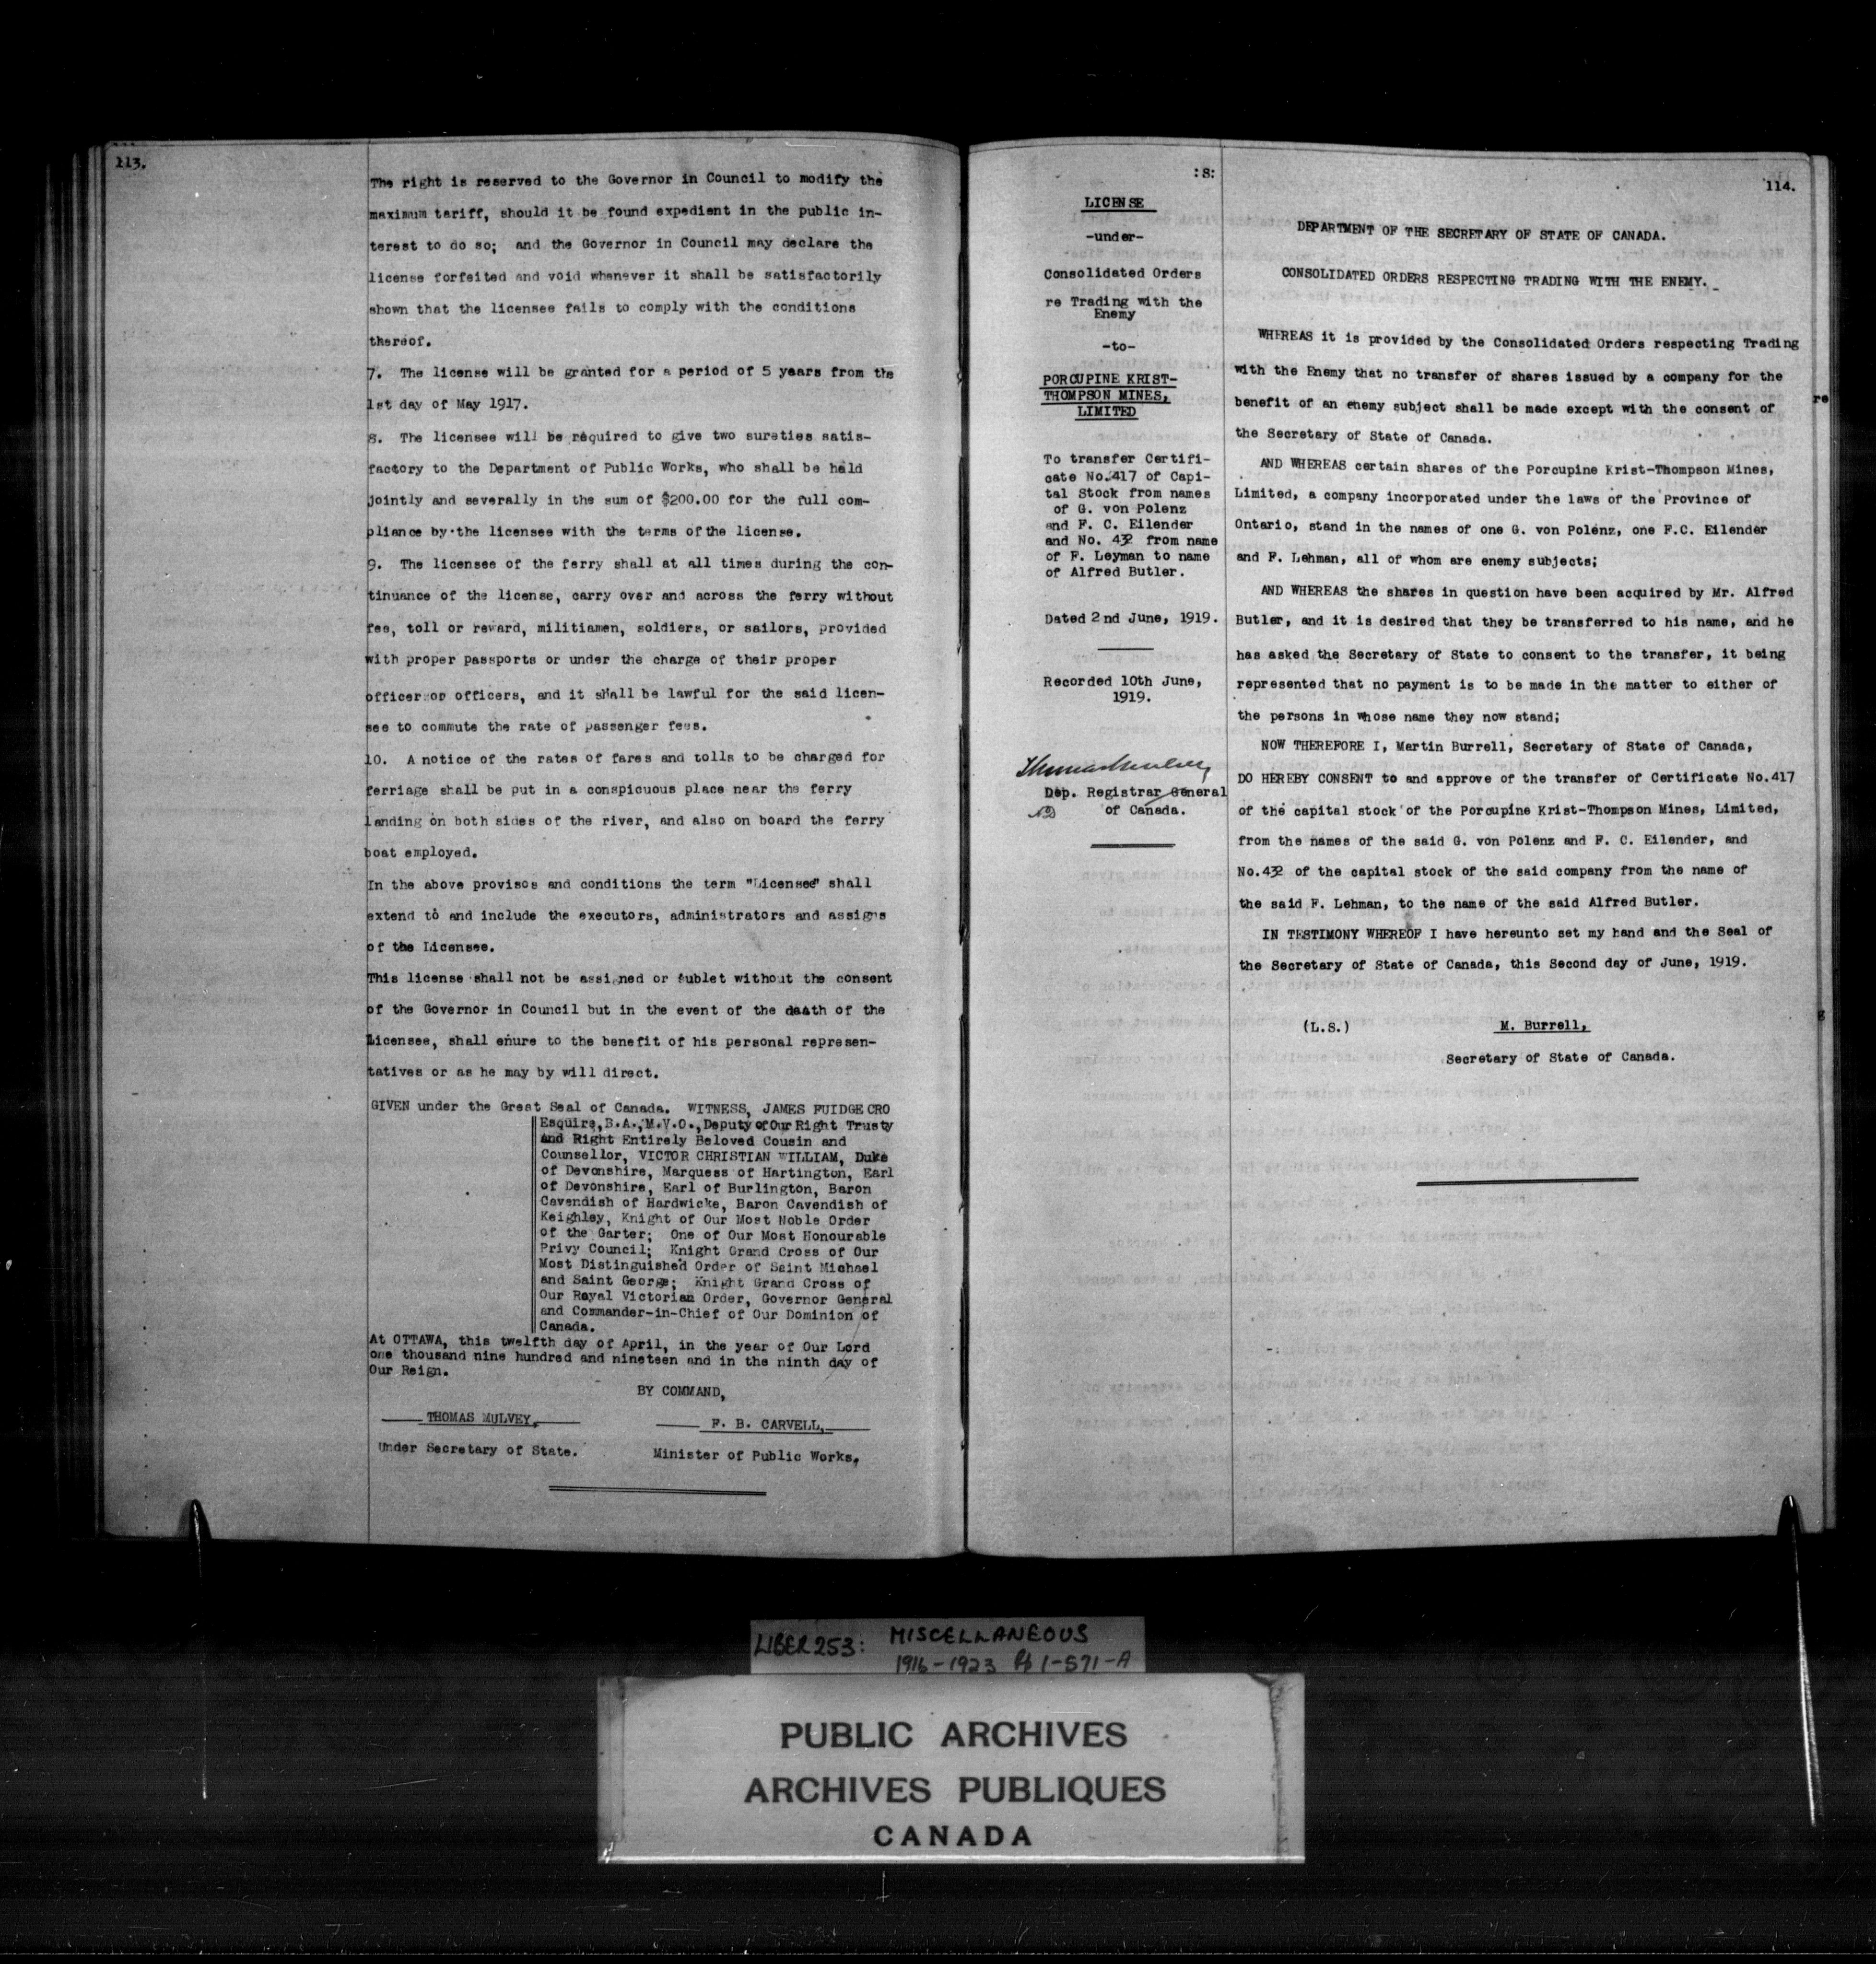 113.
The right is reserved to the Governor in Council to modify the
maximum tariff, should it be found expedient in the public in-
terest to do so; and the Governor in Council may declare the
license forfeited and void whenever it shall be satisfactorily
shown that the licensee fails to comply with the conditions
thereof.
7. The license will be granted for a period of 5 years from the
1st day of May 1917.
8. The licensee will be required to give two sureties satis-
factory to the Department of Public Works, who shall be held
jointly and severally in the sum of $200.00 for the full com-
pliance by the licensee with the terms of the license.
9. The licensee of the ferry shall at all times during the con-
tinuance of the license, carry over and across the ferry without
fee, toll or reward, militiamen, soldiers, or sailors, provided
with proper passports or under the charge of their proper
officer or officers, and it shall be lawful for the said licen-
see to commute the rate of passenger fees.
10. A notice of the rates of fares and tolls to be charged for
ferriage shall be put in a conspicuous place near the ferry
landing on both sides of the river, and also on board the ferry
boat employed.
In the above provisos and conditions the term "Licensee" shall
extend to and include the executors, administrators and assigns
of the Licensee.
This license shall not be assigned or sublet without the consent
of the Governor in Council but in the event of the death of the
Licensee, shall enure to the benefit of his personal represen-
tatives or as he may by will direct.
GIVEN under the Great Seal of Canada. WITNESS, JAMES FUIDGE CRO
Esquire, B.A., M.V.O., Deputy of Our Right Trusty
and Right Entirely Beloved Cousin and
Counsellor, VICTOR CHRISTIAN WILLIAM, Duke
of Devonshire, Marquess of Hartington, Earl
of Devonshire, Earl of Burlington, Baron
Cavendish of Hardwicke, Baron Cavendish of
Keighley, Knight of Our Most Noble Order
of the Garter; One of Our Most Honourable
Privy Council; Knight Grand Cross of Our
Most Distinguished Order of Saint Michael
and Saint George; Knight Grand Cross of
Our Royal Victorian Order, Governor General
and Commander-in-Chief of Our Dominion of
Canada.
At OTTAWA, this twelfth day of April, in the year of Our Lord
one thousand nine hundred and nineteen and in the ninth day of
Our Reign.
BY COMMAND,
THOMAS MULVEY,
Under Secretary of State.
F. B. CARVELL,
Minister of Public Works.
:S:
LICENSE
-under-
Consolidated Orders
re Trading with the
Enemy
-to-
PORCUPINE KRIST-
THOMPSON MINES,
LIMITED
To transfer Certifi-
cate No.417 of Capi-
tal Stock from names
of G. von Polenz
and F. C. Eilender
and No. 432 from name
of F. Leyman to name
of Alfred Butler.
Dated 2nd June, 1919.
Recorded 10th June,
1919.
Thomas Mulvey
Dep. Registrar General
of Canada.
114.
DEPARTMENT OF THE SECRETARY OF STATE OF CANADA.
CONSOLIDATED ORDERS RESPECTING TRADING WITH THE ENEMY.
WHEREAS it is provided by the Consolidated Orders respecting Trading
with the Enemy that no transfer of shares issued by a company for the
benefit of an enemy subject shall be made except with the consent of
the Secretary of State of Canada.
AND WHEREAS certain shares of the Porcupine Krist-Thompson Mines,
Limited, a company incorporated under the laws of the Province of
Ontario, stand in the names of one G. von Polenz, one F.C. Eilender
and F. Lehman, all of whom are enemy subjects;
AND WHEREAS the shares in question have been acquired by Mr. Alfred
Butler, and it is desired that they be transferred to his name, and he
has asked the Secretary of State to consent to the transfer, it being
represented that no payment is to be made in the matter to either of
the persons in whose name they now stand;
NOW THEREFORE I, Martin Burrell, Secretary of State of Canada,
DO HEREBY CONSENT to and approve of the transfer of Certificate No.417
of the capital stock of the Porcupine Krist-Thompson Mines, Limited,
from the names of the said G. von Polenz and F. C. Eilender, and
No.432 of the capital stock of the said company from the name of
the said F. Lehman, to the name of the said Alfred Butler.
IN TESTIMONY WHEREOF I have hereunto set my hand and the Seal of
the Secretary of State of Canada, this Second day of June, 1919.
(L.S.)
M. Burrell,
Secretary of State of Canada.
LIBER 253: MISCELLANEOUS
1916-1923 Pt 1-571-A
PUBLIC ARCHIVES
ARCHIVES PUBLIQUES
CANADA